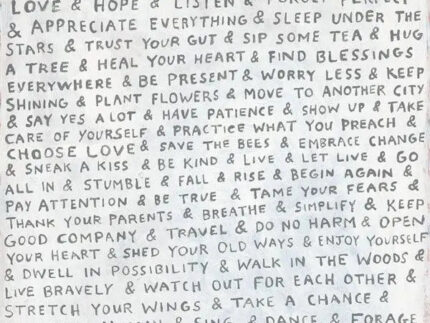 LOVE & HOPE & LISTEN & FORGET PERFECT
& APPRECIATE EVERYTHING & SLEEP UNDER THE
STARS & TRUST YOUR GUT & SIP SOME TEA & HUG
A TREE & HEAL YOUR HEART & FIND BLESSINGS
EVERYWHERE & BE PRESENT & WORRY LESS & KEEP
SHINING & PLANT FLOWERS & MOVE TO ANOTHER CITY
& SAY YES A LOT & HAVE PATIENCE & SHOW UP & TAKE
CARE OF YOURSELF & PRACTICE WHAT YOU PREACH &
CHOOSE LOVE & SAVE THE BEES & EMBRACE CHANGE
& SNEAK A KISS & BE KIND & LIVE & LET LIVE & GO
ALL IN & STUMBLE & FALL & RISE & BEGIN AGAIN &
PAY ATTENTION & BE TRUE & TAME YOUR FEARS &
THANK YOUR PARENTS & BREATHE & SIMPLIFY & KEEP
GOOD COMPANY & TRAVEL & DO NO HARM & OPEN
YOUR HEART & SHED YOUR OLD WAYS & ENJOY YOURSELF
& DWELL IN POSSIBILITY & WALK IN THE WOODS &
LIVE BRAVELY & WATCH OUT FOR EACH OTHER &
STRETCH YOUR WINGS & TAKE A CHANCE &
& SING & DANCE & FORAGE